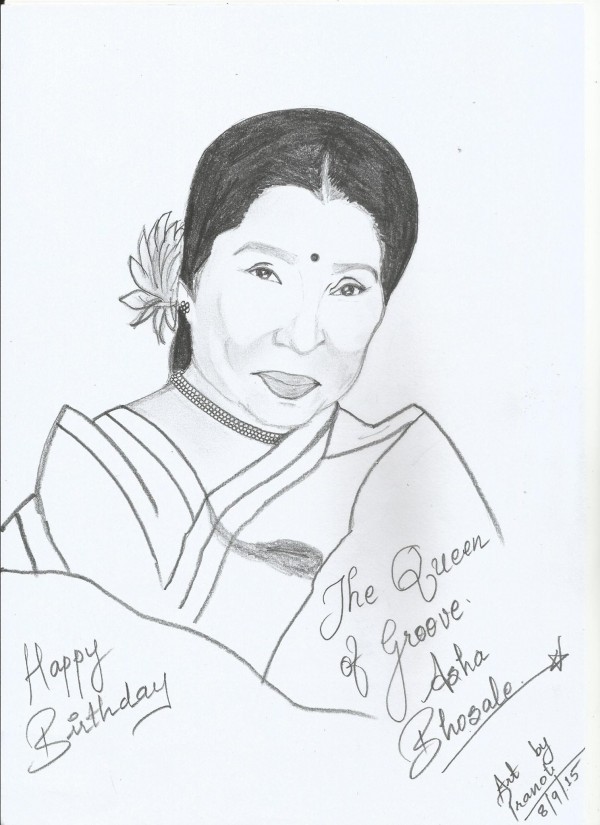 Happy
Birthday
The Queen
of Groove.
Asha
Bhosale.
Art by
Pranoti
8/9/15